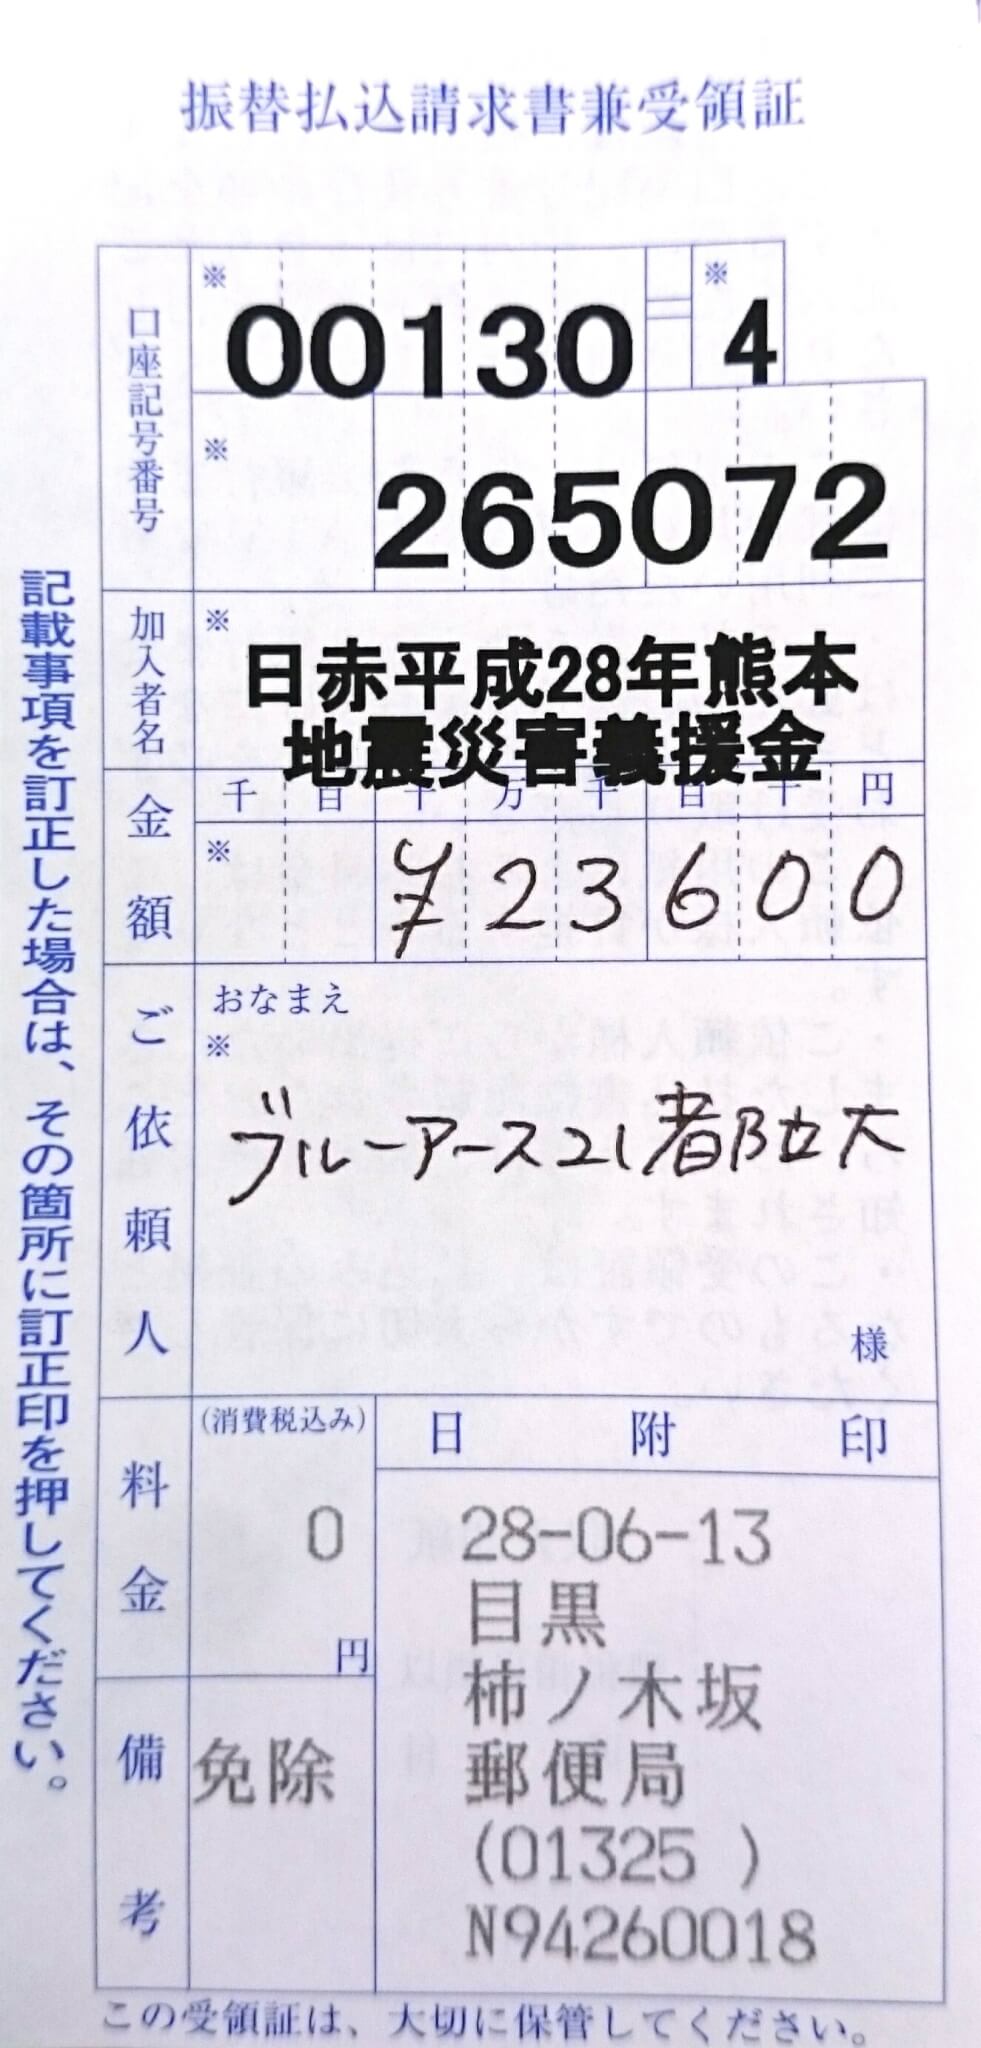 振替払込請求書兼受領証
口座記号番号
※
00130
※
4
※
265072
加入者名
※
日赤平成28年熊本
地震災害義援金
金額
千百十万千百十円
※
¥23600
ご依頼人
おなまえ
※
ブルーアース21都立大
様
料金
(消費税込み)
0
円
日附印
28-06-13
目黒
柿ノ木坂
郵便局
(01325 )
N94260018
備考
免除
記載事項を訂正した場合は、その箇所に訂正印を押してください。
この受領証は、大切に保管してください。